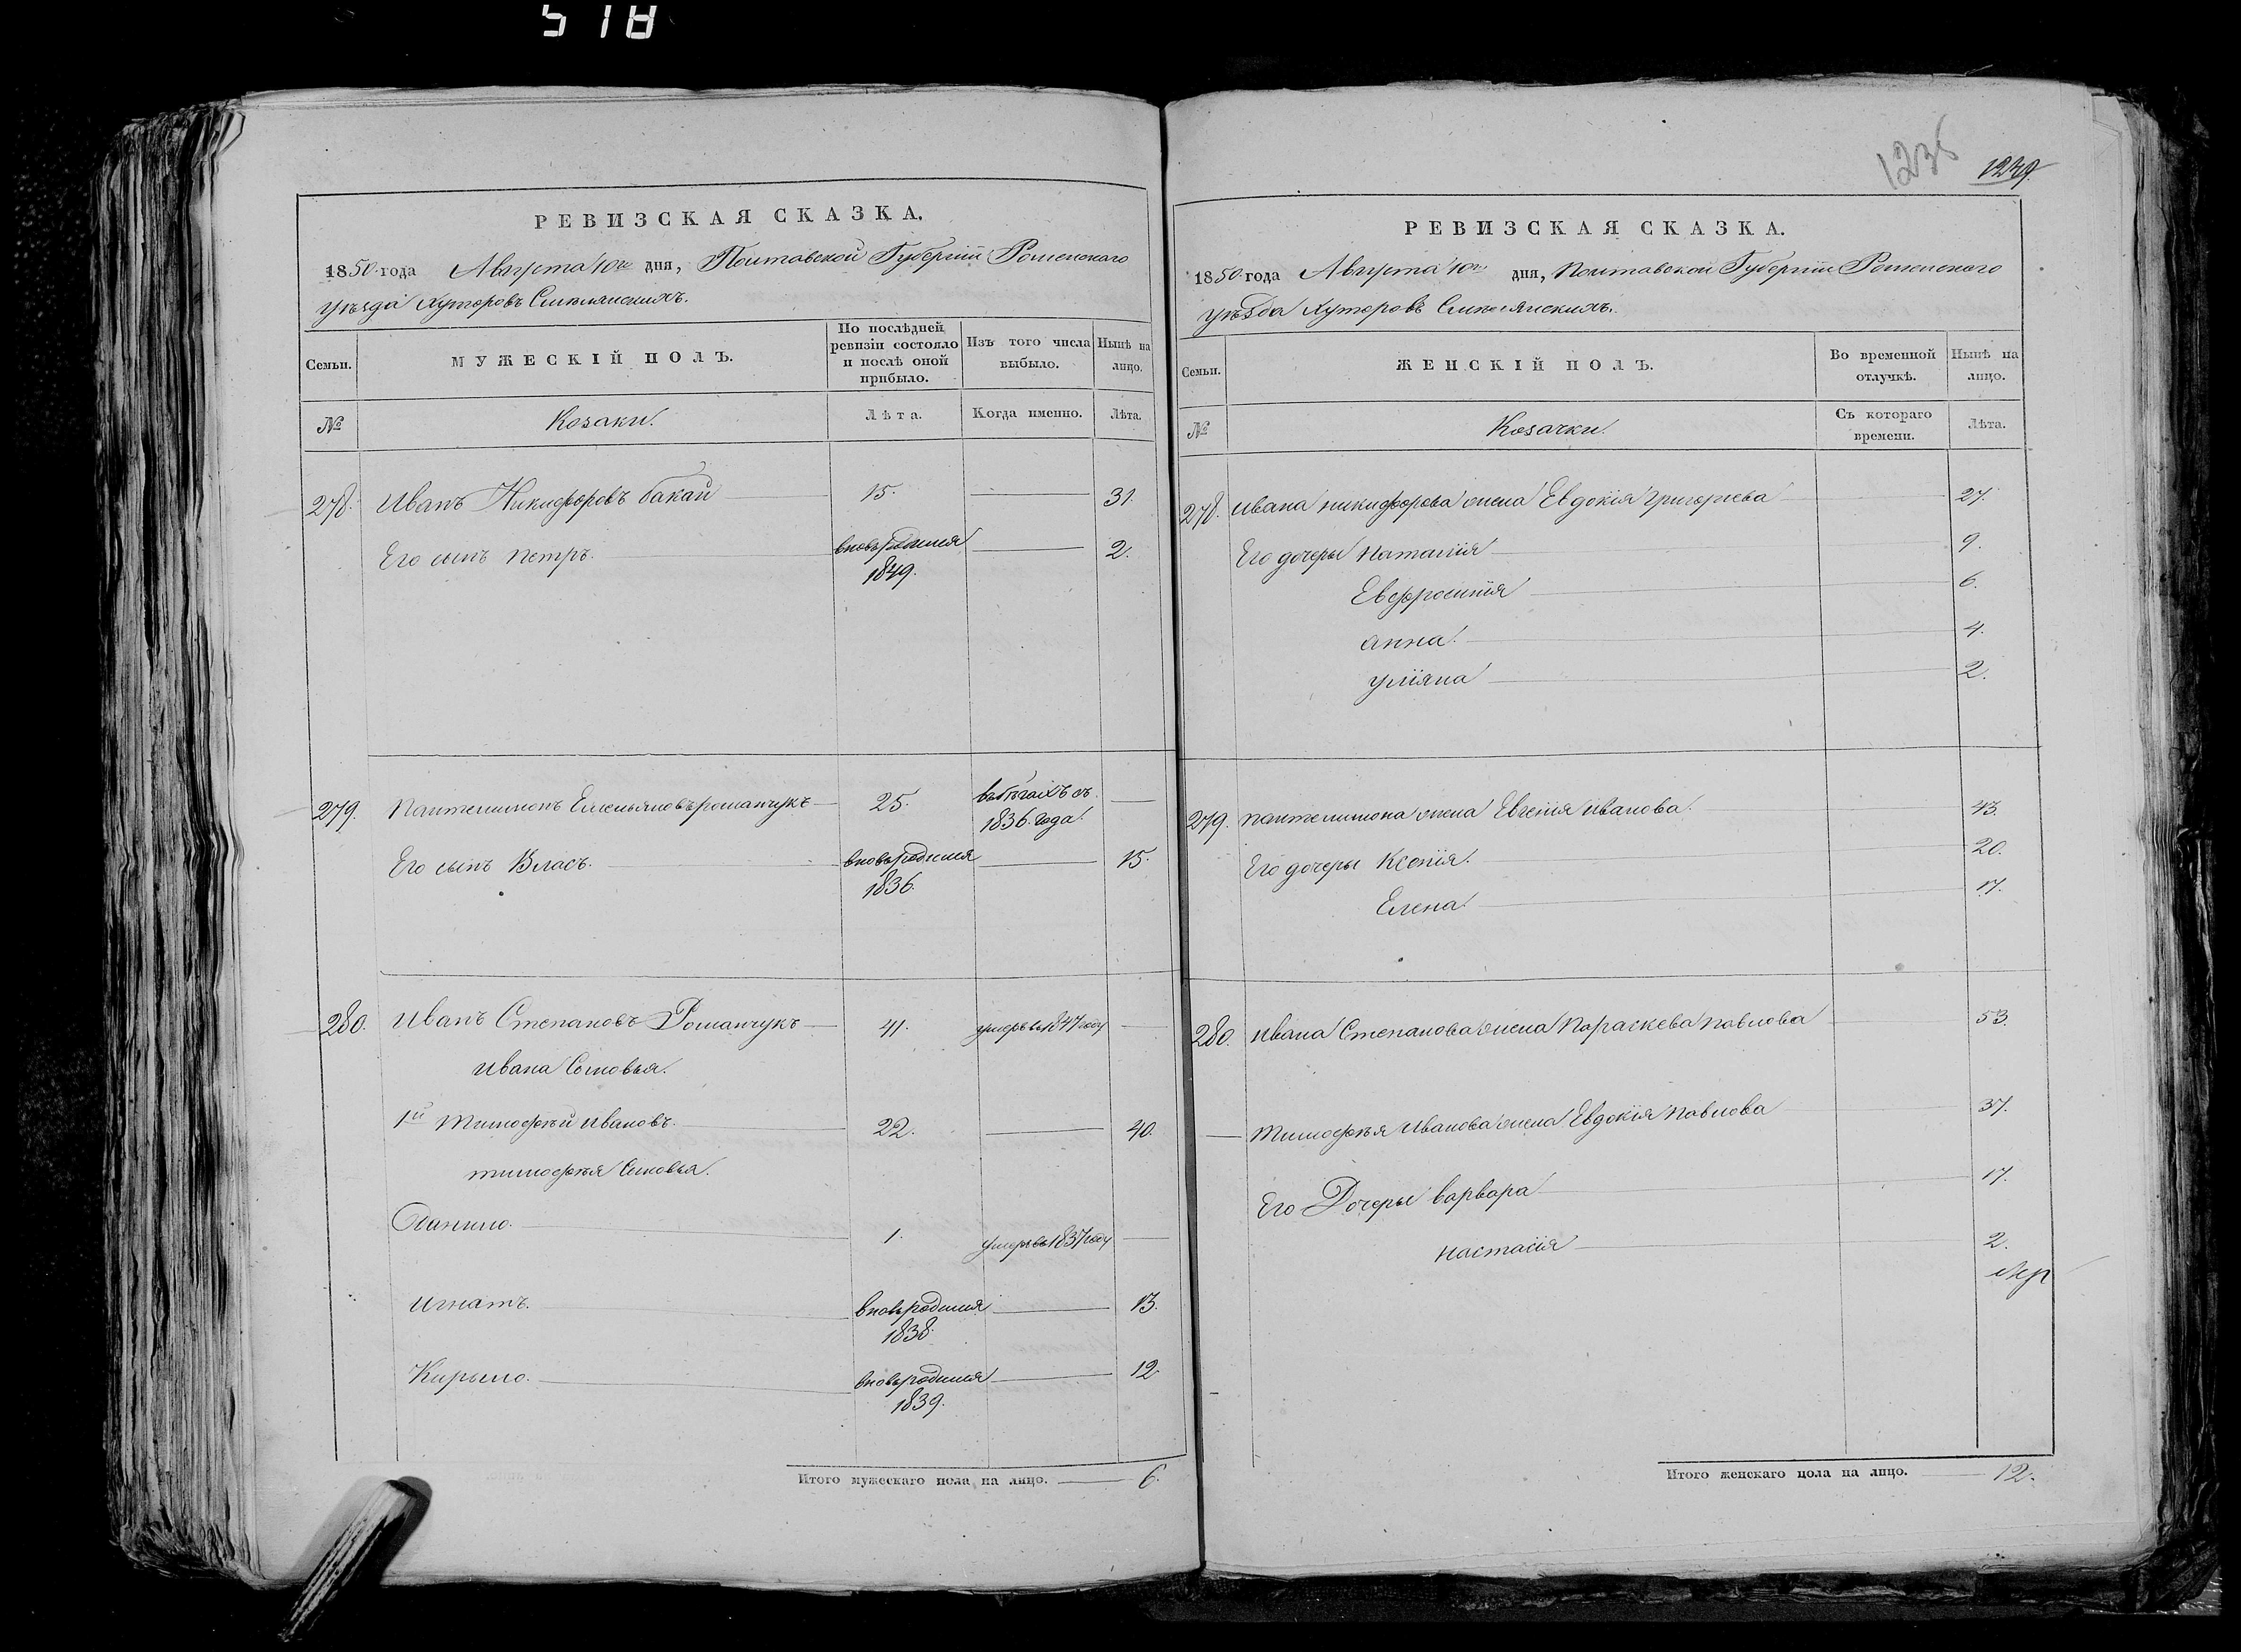 518
РЕВИЗСКАЯ СКАЗКА.
1850 года Августа 10го дня, Полтавской Губерніи Роменского
уѣзда Хуторовъ Смелянскихъ.
Семьи.
МУЖЕСКІЙ ПОЛЪ.
По послѣдней ревизіи состояло и послѣ оной прибыло.
Изъ того числа выбыло.
Нынѣ на лицо.
№
Козаки.
Лѣта.
Когда именно.
Лѣта.
278. Иванъ Никифоровъ бакай 15. 31.
Его сынъ петръ. вновьродился 1849. 2.
279. пантелимонъ Емельяновъ романчукъ 25. въбѣгахъ съ 1836. года.
Его сынъ Власъ. вновьродился 1836. 15.
280. Иванъ Степановъ Романчукъ 41. умеръ в 1847 году
Ивана Сыновья.
1й тимофѣй ивановъ. 22. 40.
тимофѣя Синовья.
Данило. 1. умеръ в 1837 году
игнатъ. вновьродился 1838. 13.
Кирыло. вновьродился 1839. 12.
Итого мужескаго пола на лицо. 6.
1236
РЕВИЗСКАЯ СКАЗКА.
1850 года Августа 10го дня, полтавской Губерніи Роменского
уѣзда Хуторовъ Смелянскихъ.
Семьи.
ЖЕНСКІЙ ПОЛЪ.
Во временной отлучкѣ.
Нынѣ на лицо.
№
Козачки.
Съ котораго времени.
Лѣта.
278. ивана никифорова жена Евдокія григорьева 27.
Его дочеры наталія 9.
Евфросинія 6.
анна. 4.
уліяна 2.
279. пантелимона жена Евгенія иванова. 43.
Его дочеры Ксенія. 20.
Елена. 17.
280. ивана Степанова жена параскева павлова 53.
тимофѣя иванова жена Евдокія павлова 37.
Его Дочеры варвара 17.
настасія 2.
Итого женскаго пола на лицо. 12.